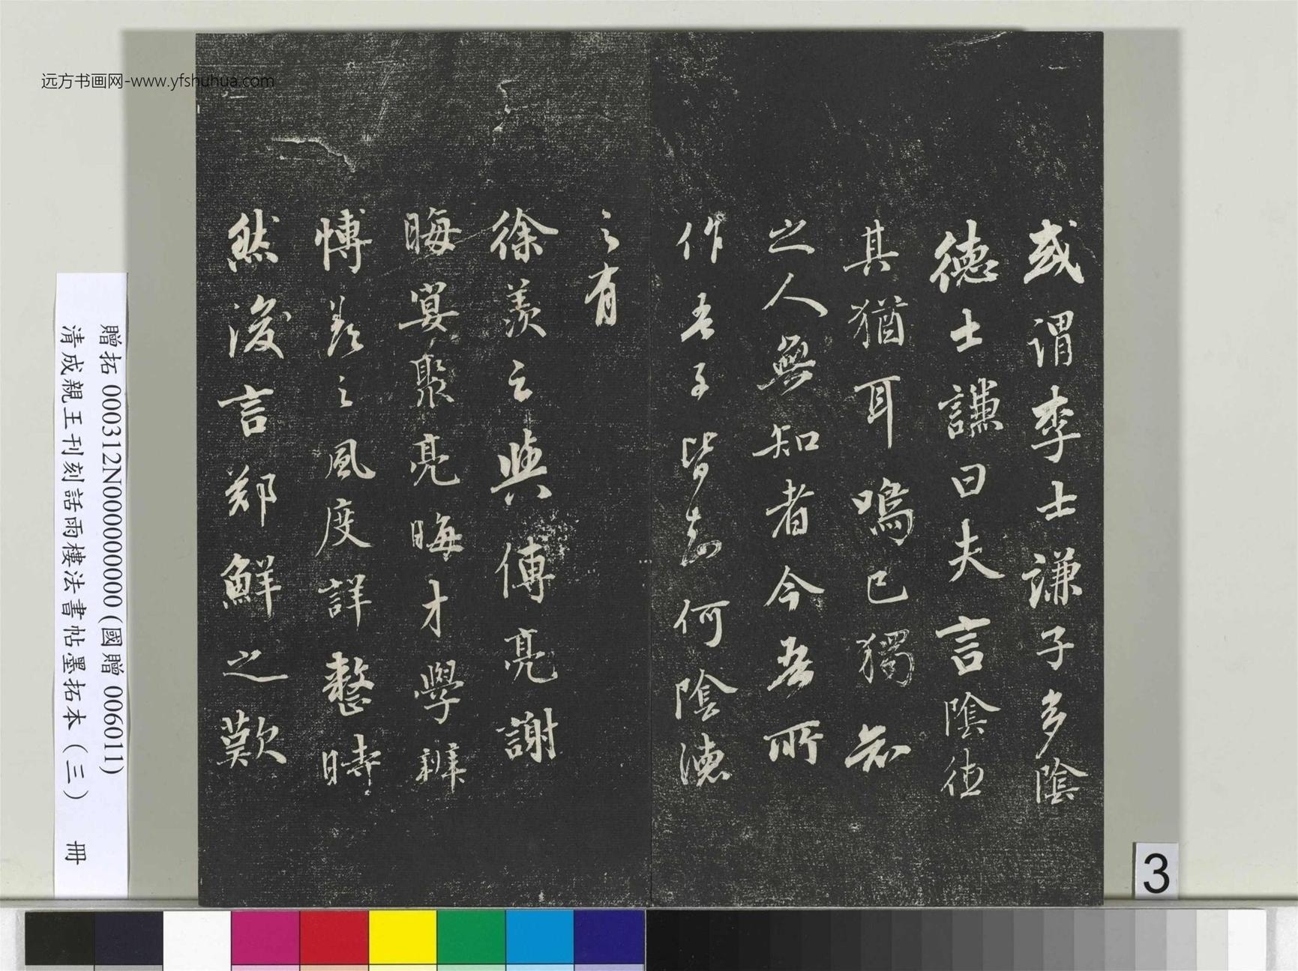 远方书画网-www.yfshuhua.com
或謂李士謙子多陰
德士謙曰夫言陰德
其猶耳鳴己獨知
之人無知者今吾所
作吾子皆知何陰德
之有
徐羨之與傅亮謝
晦宴聚亮晦才學辨
博羨之風度詳整時
然後言鄭鮮之歎
贈拓 000312N000000000(國贈 006011)
清成親王刊刻詒雨樓法書帖墨拓本(三) 冊
3